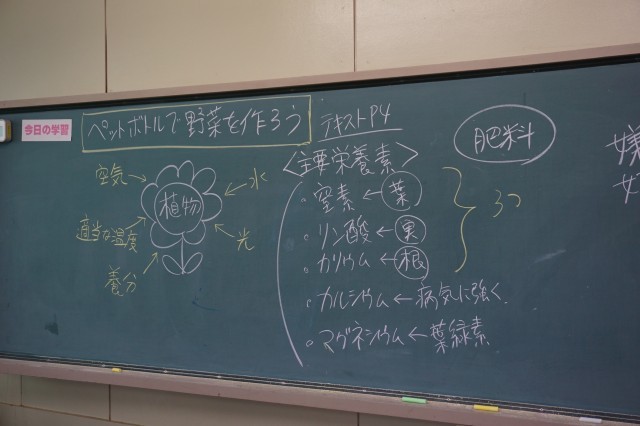 今日の学習
ペットボトルで野菜を作ろう
テキストP4
肥料
空気→
←水
植物
適当な温度
←光
養分
<主要栄養素>
・窒素←葉
・リン酸←実
・カリウム←根
3つ
・カルシウム←病気に強く
・マグネシウム←葉緑素